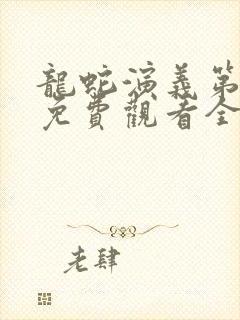 龍蛇演義第
免費觀看全
老肆